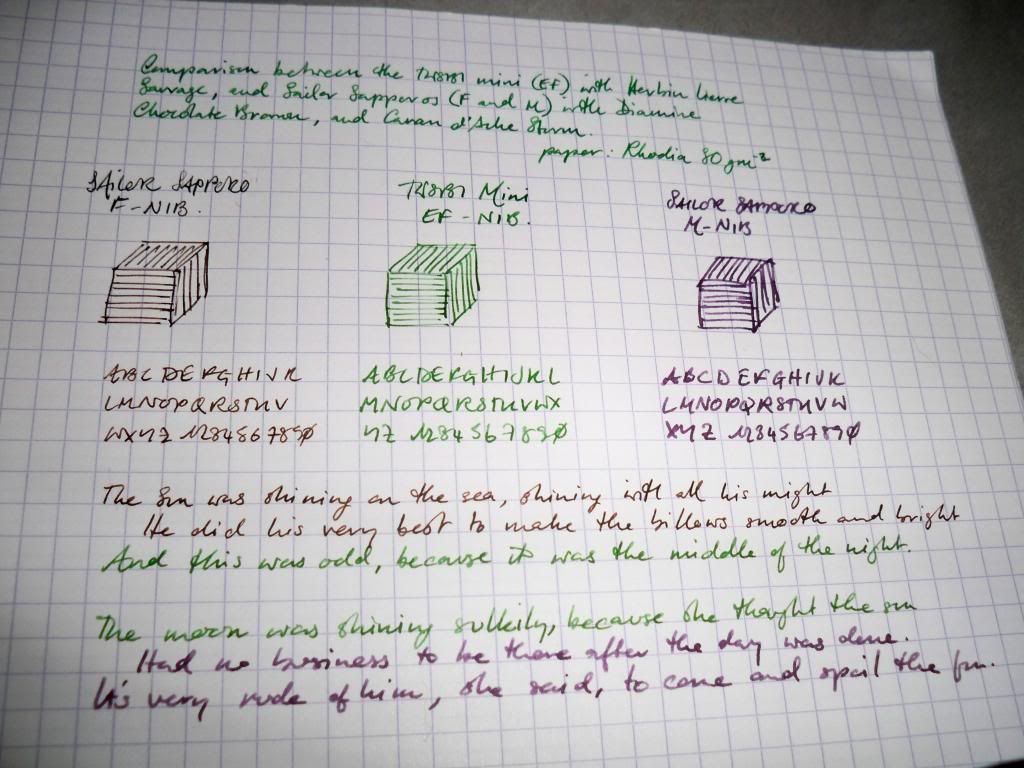 Comparison between the TWSBI mini (EF) with Herbin Lierre
Sauvage, and Sailor Sapporos (F and M) with Diamine
Chocolate Brown, and Caran d'Ache Storm.
paper: Rhodia 80 gm-2
SAILOR SAPPORO
F-NIB.
TWSBI Mini
EF-NIB.
SAILOR SAPPORO
M-NIB
ABCDEFGHIJK
LMNOPQRSTUV
WXYZ 1234567890
ABCDEFGHIJKL
MNOPQRSTUVWX
YZ 1234567890
ABCDEFGHIJK
LMNOPQRSTUVW
XYZ 1234567890
The Sun was shining on the sea, shining with all his might
He did his very best to make the billows smooth and bright
And this was odd, because it was the middle of the night.
The moon was shining sulkily, because she thought the sun
Had no business to be there after the day was done.
It's very rude of him, she said, to come and spoil the fun.